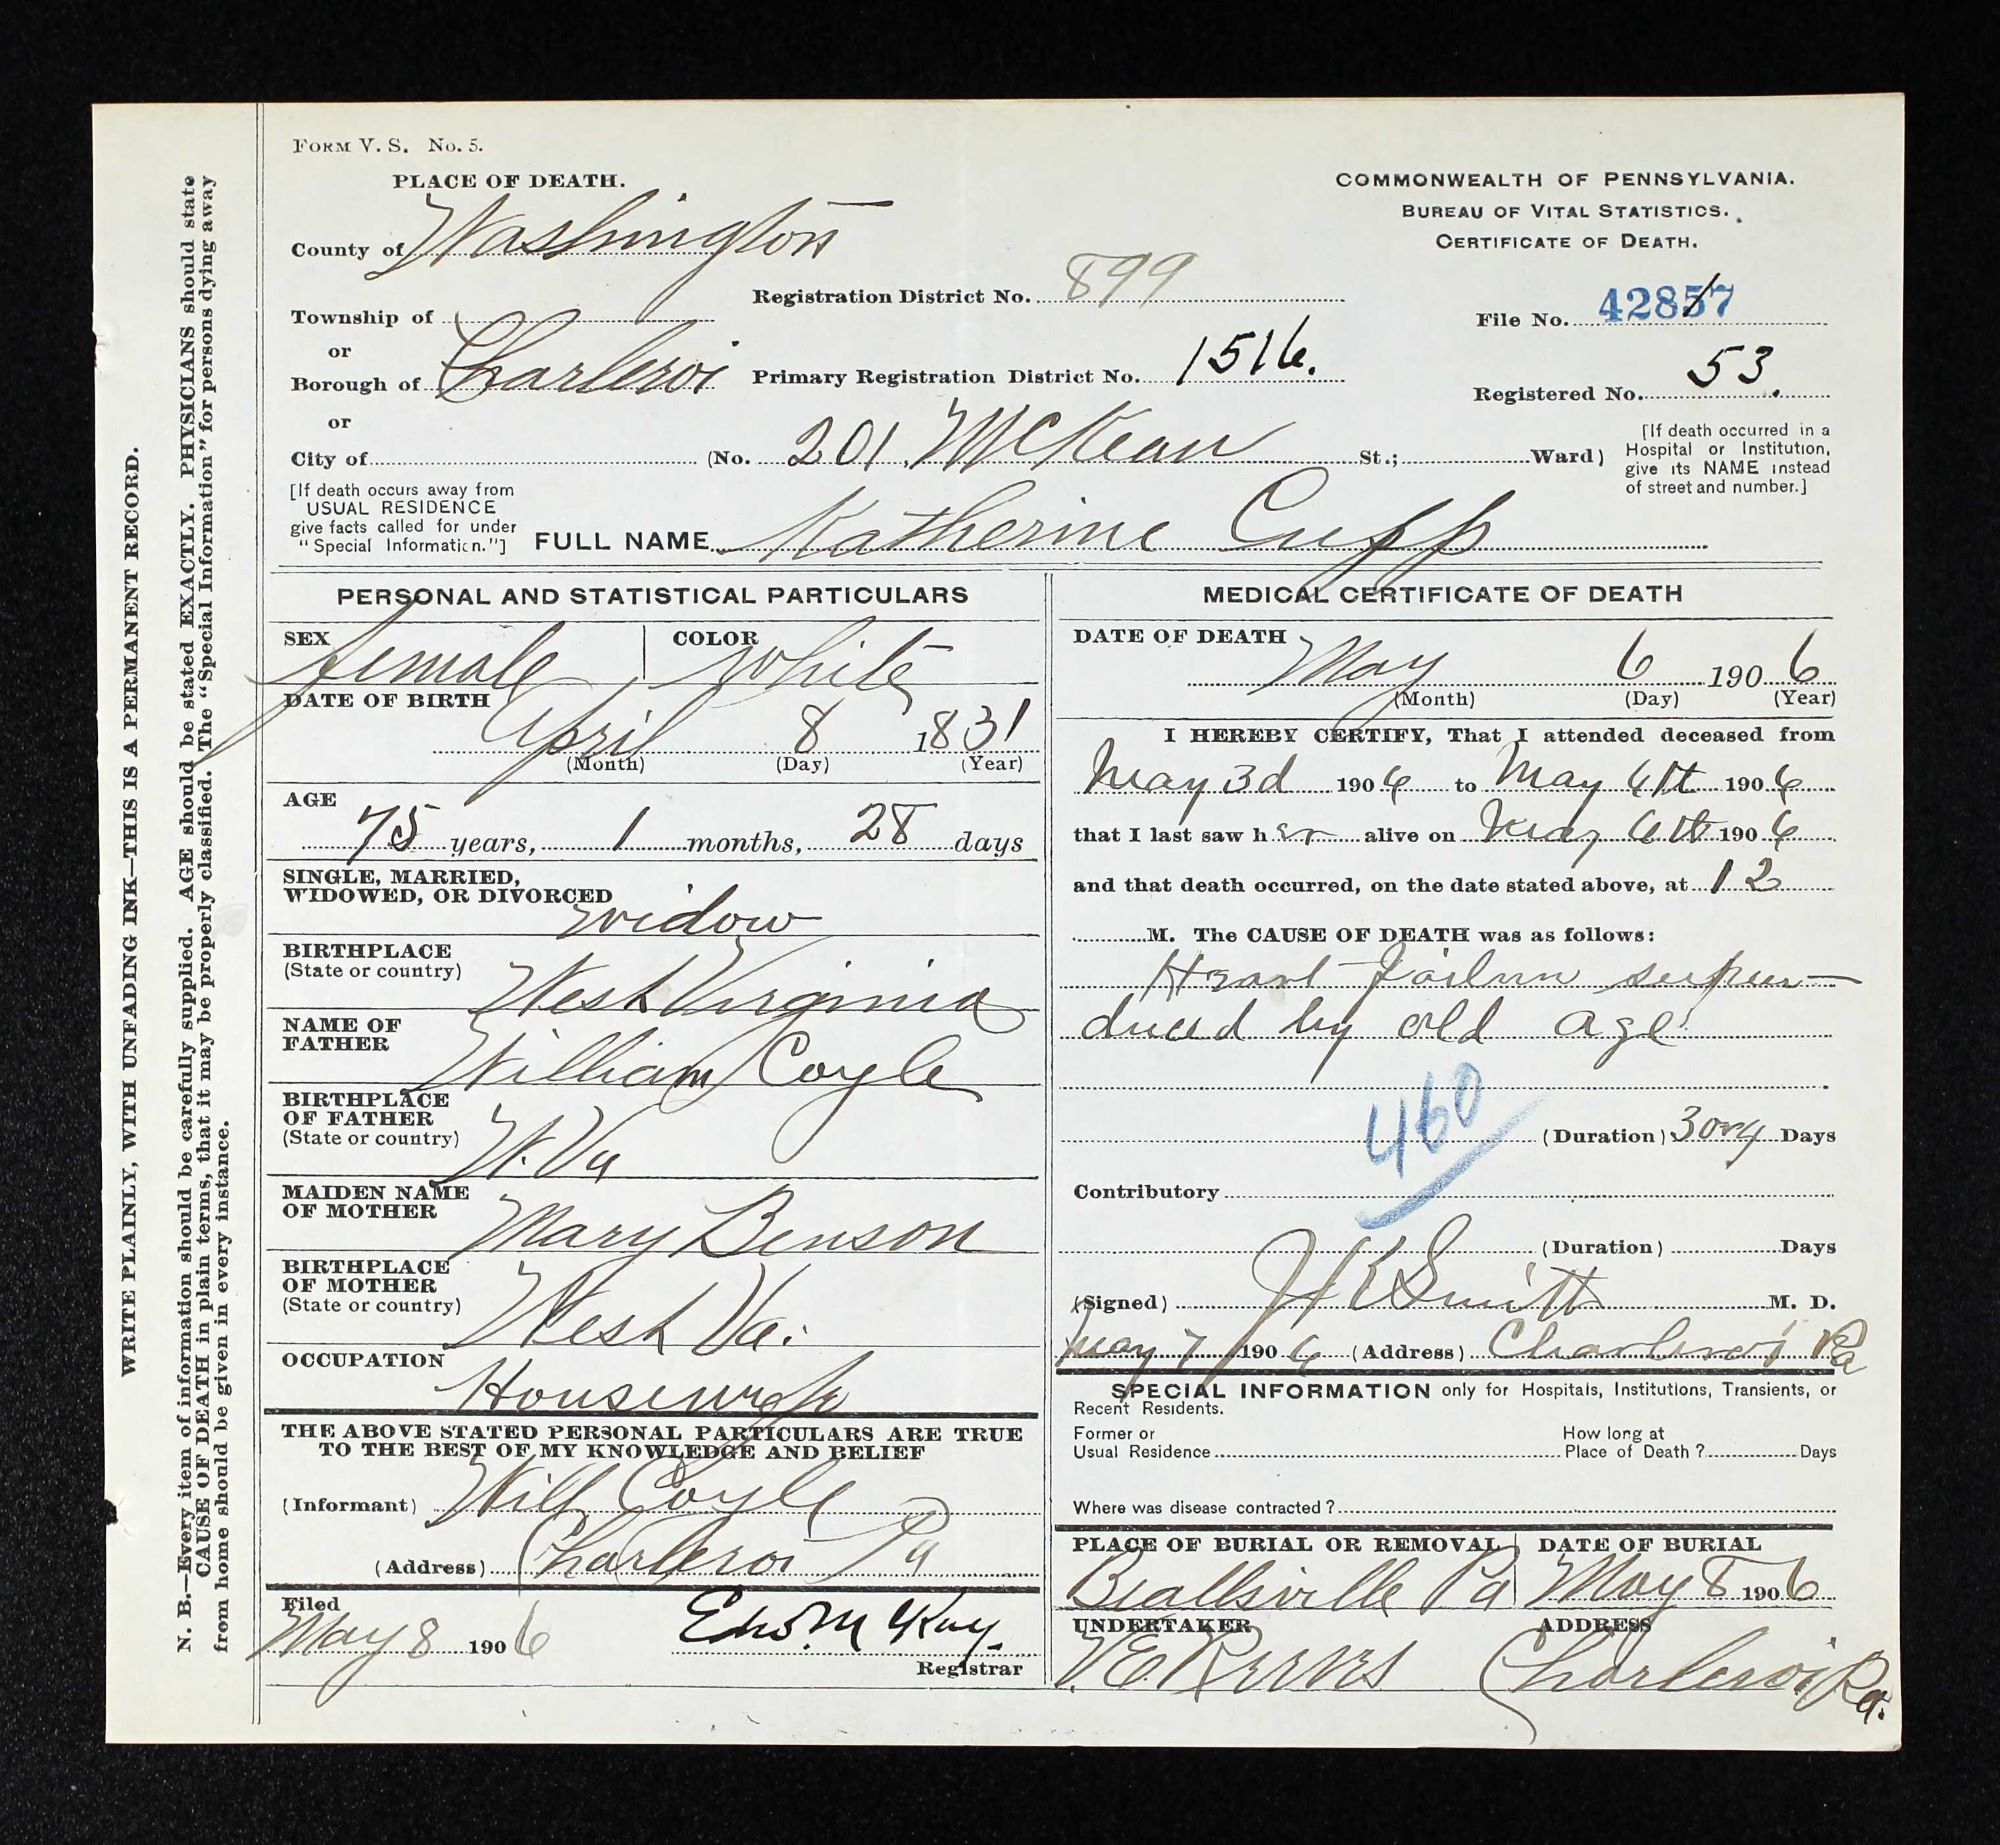 FORM V. S. No. 5.
PLACE OF DEATH.
County of Washington
Township of
or
Borough of Charleroi
or
City of
(No. 201 McKean St.; Ward)
[If death occurs away from
USUAL RESIDENCE
give facts called for under
"Special Information."]
Registration District No. 899
Primary Registration District No. 1516.
COMMONWEALTH OF PENNSYLVANIA.
BUREAU OF VITAL STATISTICS.
CERTIFICATE OF DEATH.
File No. 42857
Registered No. 53.
[If death occurred in a
Hospital or Institution,
give its NAME instead
of street and number.]
FULL NAME Katherine Cupp
PERSONAL AND STATISTICAL PARTICULARS
SEX female
COLOR White
DATE OF BIRTH
April 8 1831
(Month) (Day) (Year)
AGE
75 years, 1 months, 28 days
SINGLE, MARRIED,
WIDOWED, OR DIVORCED
widow
BIRTHPLACE
(State or country)
West Virginia
NAME OF
FATHER
William Coyle
BIRTHPLACE
OF FATHER
(State or country)
W. Va
MAIDEN NAME
OF MOTHER
Mary Benson
BIRTHPLACE
OF MOTHER
(State or country)
West Va.
OCCUPATION
Housewife
THE ABOVE STATED PERSONAL PARTICULARS ARE TRUE
TO THE BEST OF MY KNOWLEDGE AND BELIEF
(Informant) Will Coyle
(Address) Charleroi Pa
Filed
May 8 1906
Registrar
MEDICAL CERTIFICATE OF DEATH
DATE OF DEATH
May 6 1906
(Month) (Day) (Year)
I HEREBY CERTIFY, That I attended deceased from
May 3d 1906 to May 6th 1906
that I last saw her alive on May 6th 1906
and that death occurred, on the date stated above, at 12
M. The CAUSE OF DEATH was as follows:
Heart Failure
duced by old age
460
(Duration) Days
Contributory
(Duration) Days
(Signed) Smith M. D.
May 7 1906 (Address) Charleroi Pa
SPECIAL INFORMATION only for Hospitals, Institutions, Transients, or
Recent Residents.
Former or
Usual Residence
How long at
Place of Death ? Days
Where was disease contracted ?
PLACE OF BURIAL OR REMOVAL
Beallsville Pa
DATE OF BURIAL
May 8 1906
UNDERTAKER
ADDRESS
Charleroi Pa.
WRITE PLAINLY, WITH UNFADING INK—THIS IS A PERMANENT RECORD.
N. B.—Every item of information should be carefully supplied. AGE should be stated EXACTLY. PHYSICIANS should state
CAUSE OF DEATH in plain terms, that it may be properly classified. The "Special Information" for persons dying away
from home should be given in every instance.